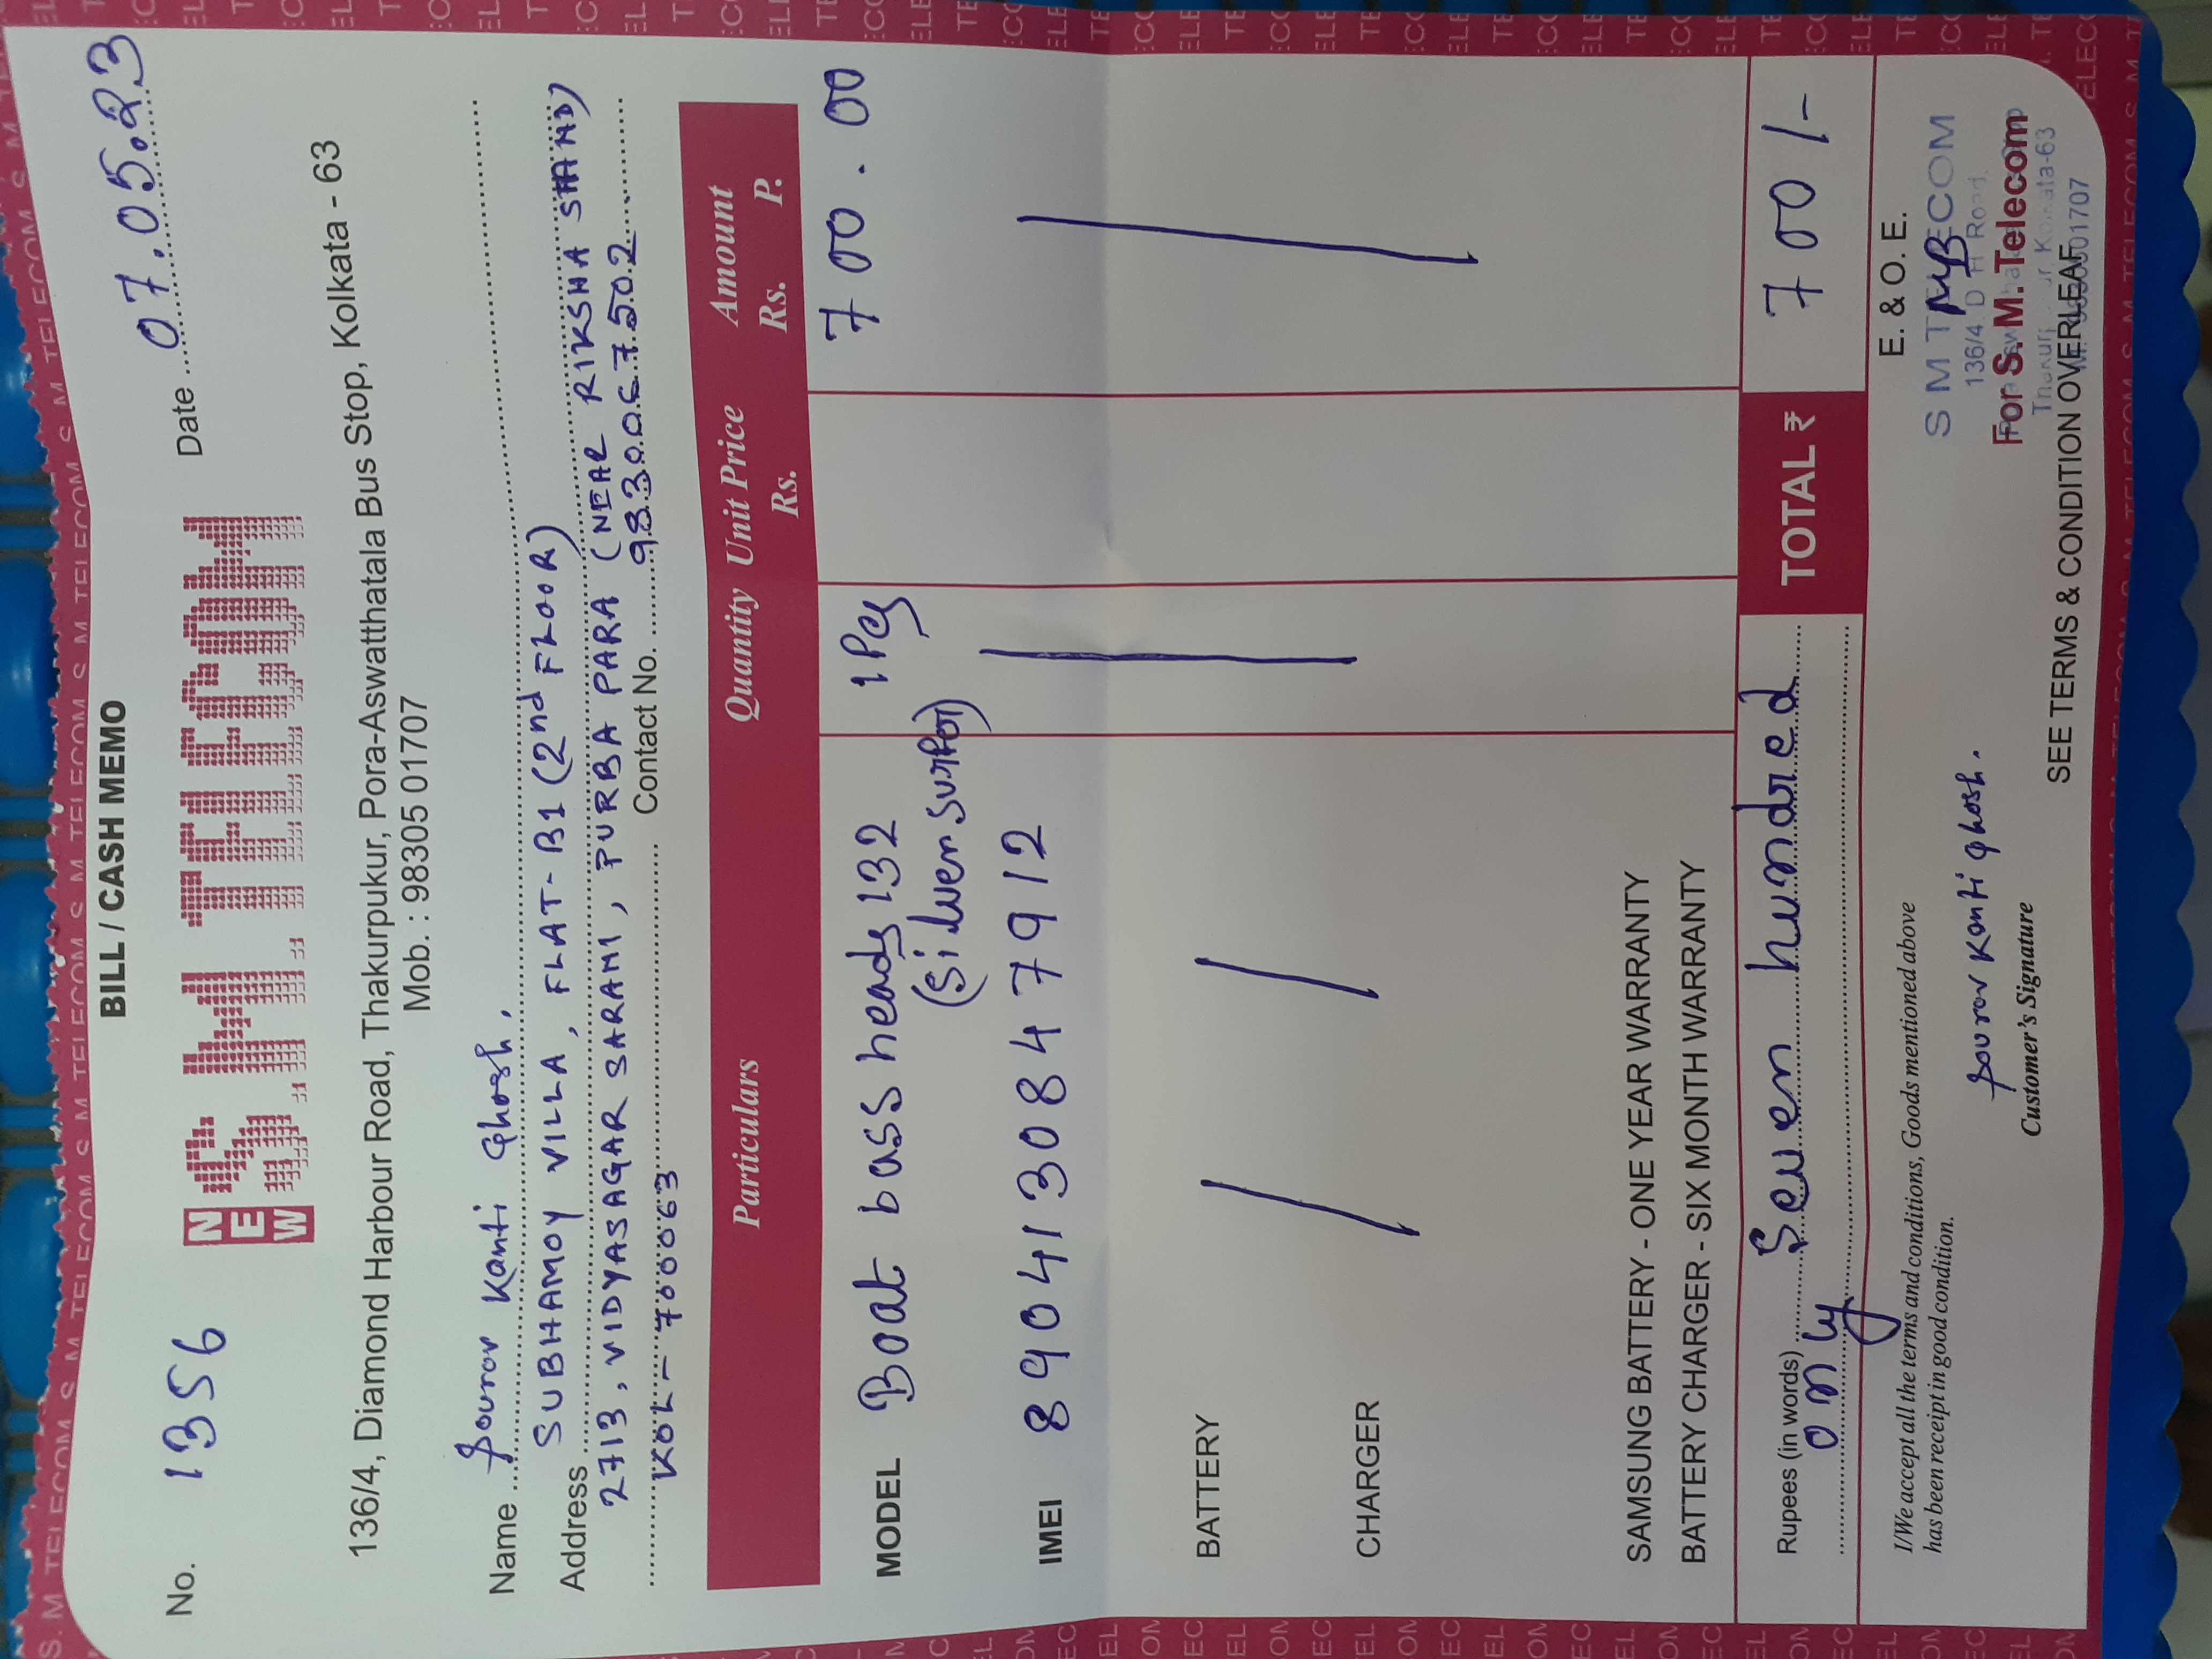 BILL / CASH MEMO
No. 1356
Date 07.05.23
NEW S.M.TELECOM
136/4, Diamond Harbour Road, Thakurpukur, Pora-Aswatthatala Bus Stop, Kolkata - 63
Mob. : 98305 01707
Name Sourav Kanti Ghosh.
Address SUBHAMOY VILLA, FLAT-B1 (2nd FLOOR)
2713, VIDYASAGAR SARANI, PURBA PARA (NEAR RIKSHA STAND)
KOL - 700063 Contact No. 9830067502
Particulars Quantity Unit Price Rs. Amount Rs. P.
MODEL Boat bass heads 132 1 Pcs 700.00
(Silver surfer)
IMEI 8904130847912
BATTERY
CHARGER
SAMSUNG BATTERY - ONE YEAR WARRANTY
BATTERY CHARGER - SIX MONTH WARRANTY
Rupees (in words) Seven hundred
only
TOTAL ₹ 700/-
I/We accept all the terms and conditions, Goods mentioned above
has been receipt in good condition.
Sourav Kanti Ghosh.
Customer's Signature
E. & O. E.
S M TELECOM
136/4 D H Road
For S. M. Telecom
Kolkata-63
M. 9830501707
SEE TERMS & CONDITION OVERLEAF